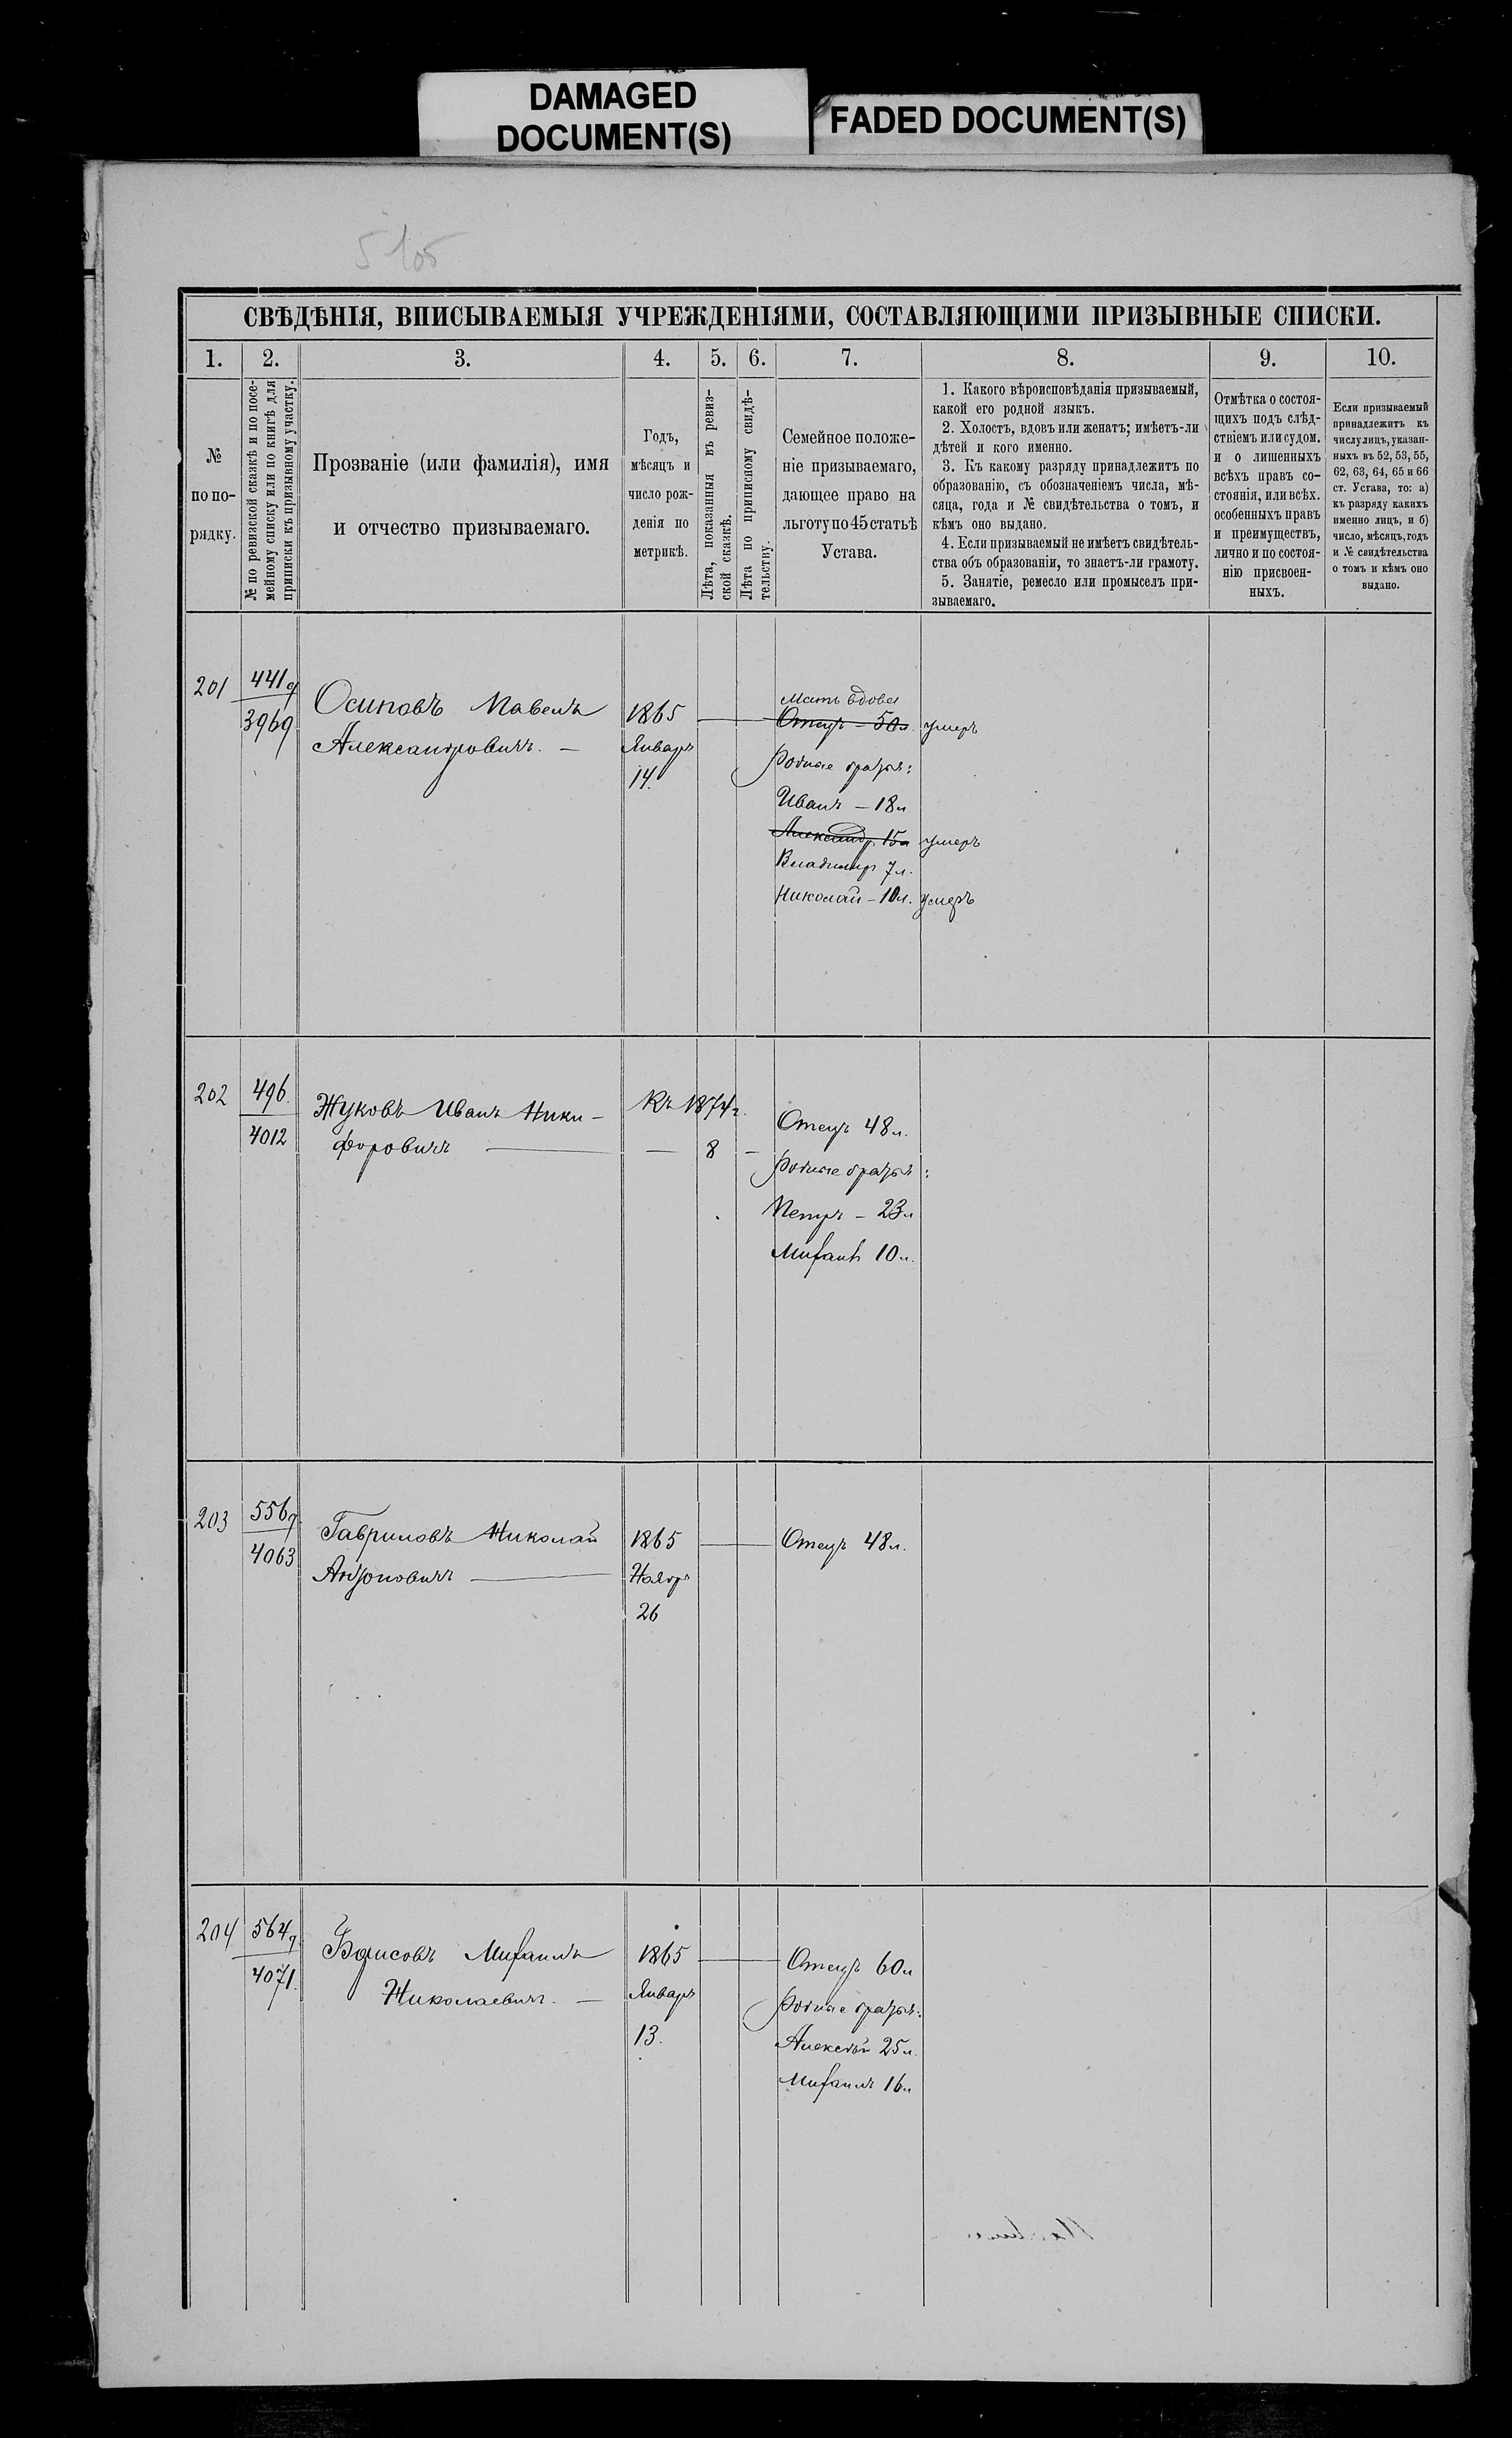 DAMAGED
DOCUMENT(S)
FADED DOCUMENT(S)
5105
СВѢДѢНІЯ, ВПИСЫВАЕМЫЯ УЧРЕЖДЕНІЯМИ, СОСТАВЛЯЮЩИМИ ПРИЗЫВНЫЕ СПИСКИ.
1. 2. 3. 4. 5. 6. 7. 8. 9. 10.
№
по по-
рядку.
№ по ревизской сказкѣ и по посе-
мейному списку или по книгѣ для
приписки къ призывному участку.
Прозваніе (или фамилія), имя
и отчество призываемаго.
Годъ,
мѣсяцъ и
число рож-
денія по
метрикѣ.
Лѣта, показанныя въ ревиз-
ской сказкѣ.
Лѣта по приписному свидѣ-
тельству.
Семейное положе-
ніе призываемаго,
дающее право на
льготу по 45 статьѣ
Устава.
1. Какого вѣроисповѣданія призываемый,
какой его родной языкъ.
2. Холостъ, вдовъ или женатъ; имѣетъ-ли
дѣтей и кого именно.
3. Къ какому разряду принадлежитъ по
образованію, съ обозначеніемъ числа, мѣ-
сяца, года и № свидѣтельства о томъ, и
кѣмъ оно выдано.
4. Если призываемый не имѣетъ свидѣтель-
ства объ образованіи, то знаетъ-ли грамоту.
5. Занятіе, ремесло или промыселъ при-
зываемаго.
Отмѣтка о состоя-
щихъ подъ слѣд-
ствіемъ или судом.
и о лишенныхъ
всѣхъ правъ со-
стоянія, или всѣх.
особенныхъ правъ
и преимуществъ,
лично и по состоя-
нію присвоен-
ныхъ.
Если призываемый
принадлежитъ къ
числу лицъ, указан-
ныхъ въ 52, 53, 55,
62, 63, 64, 65 и 66
ст. Устава, то: а)
къ разряду какихъ
именно лицъ, и б)
число, мѣсяцъ, годъ
и № свидѣтельства
о томъ и кѣмъ оно
выдано.
201
441
3969
Осиповъ Павелъ
Александровичъ. —
1865
Январь
14.
Мать вдова
Отецъ – 50л. умеръ
Родные братья:
Иванъ – 18л
Александр. 15л умеръ
Владимiръ 7л.
Николай – 10л. умеръ
202
496.
4012
Жуковъ Иванъ Ники-
форовичъ —
Къ 1874г.
— 8 —
Отецъ 48л.
Родные братья:
Петръ – 23л
Михаилъ 10л.
203
556
4063
Гавриловъ Николай
Антоновичъ —
1865
Ноябрь
26
Отецъ 48л.
204
564
4071.
Борисовъ Михаилъ
Николаевичъ. —
1865
Январь
13.
Отецъ 60л
Родные братья:
Алексѣй 25л.
Михаилъ 16л